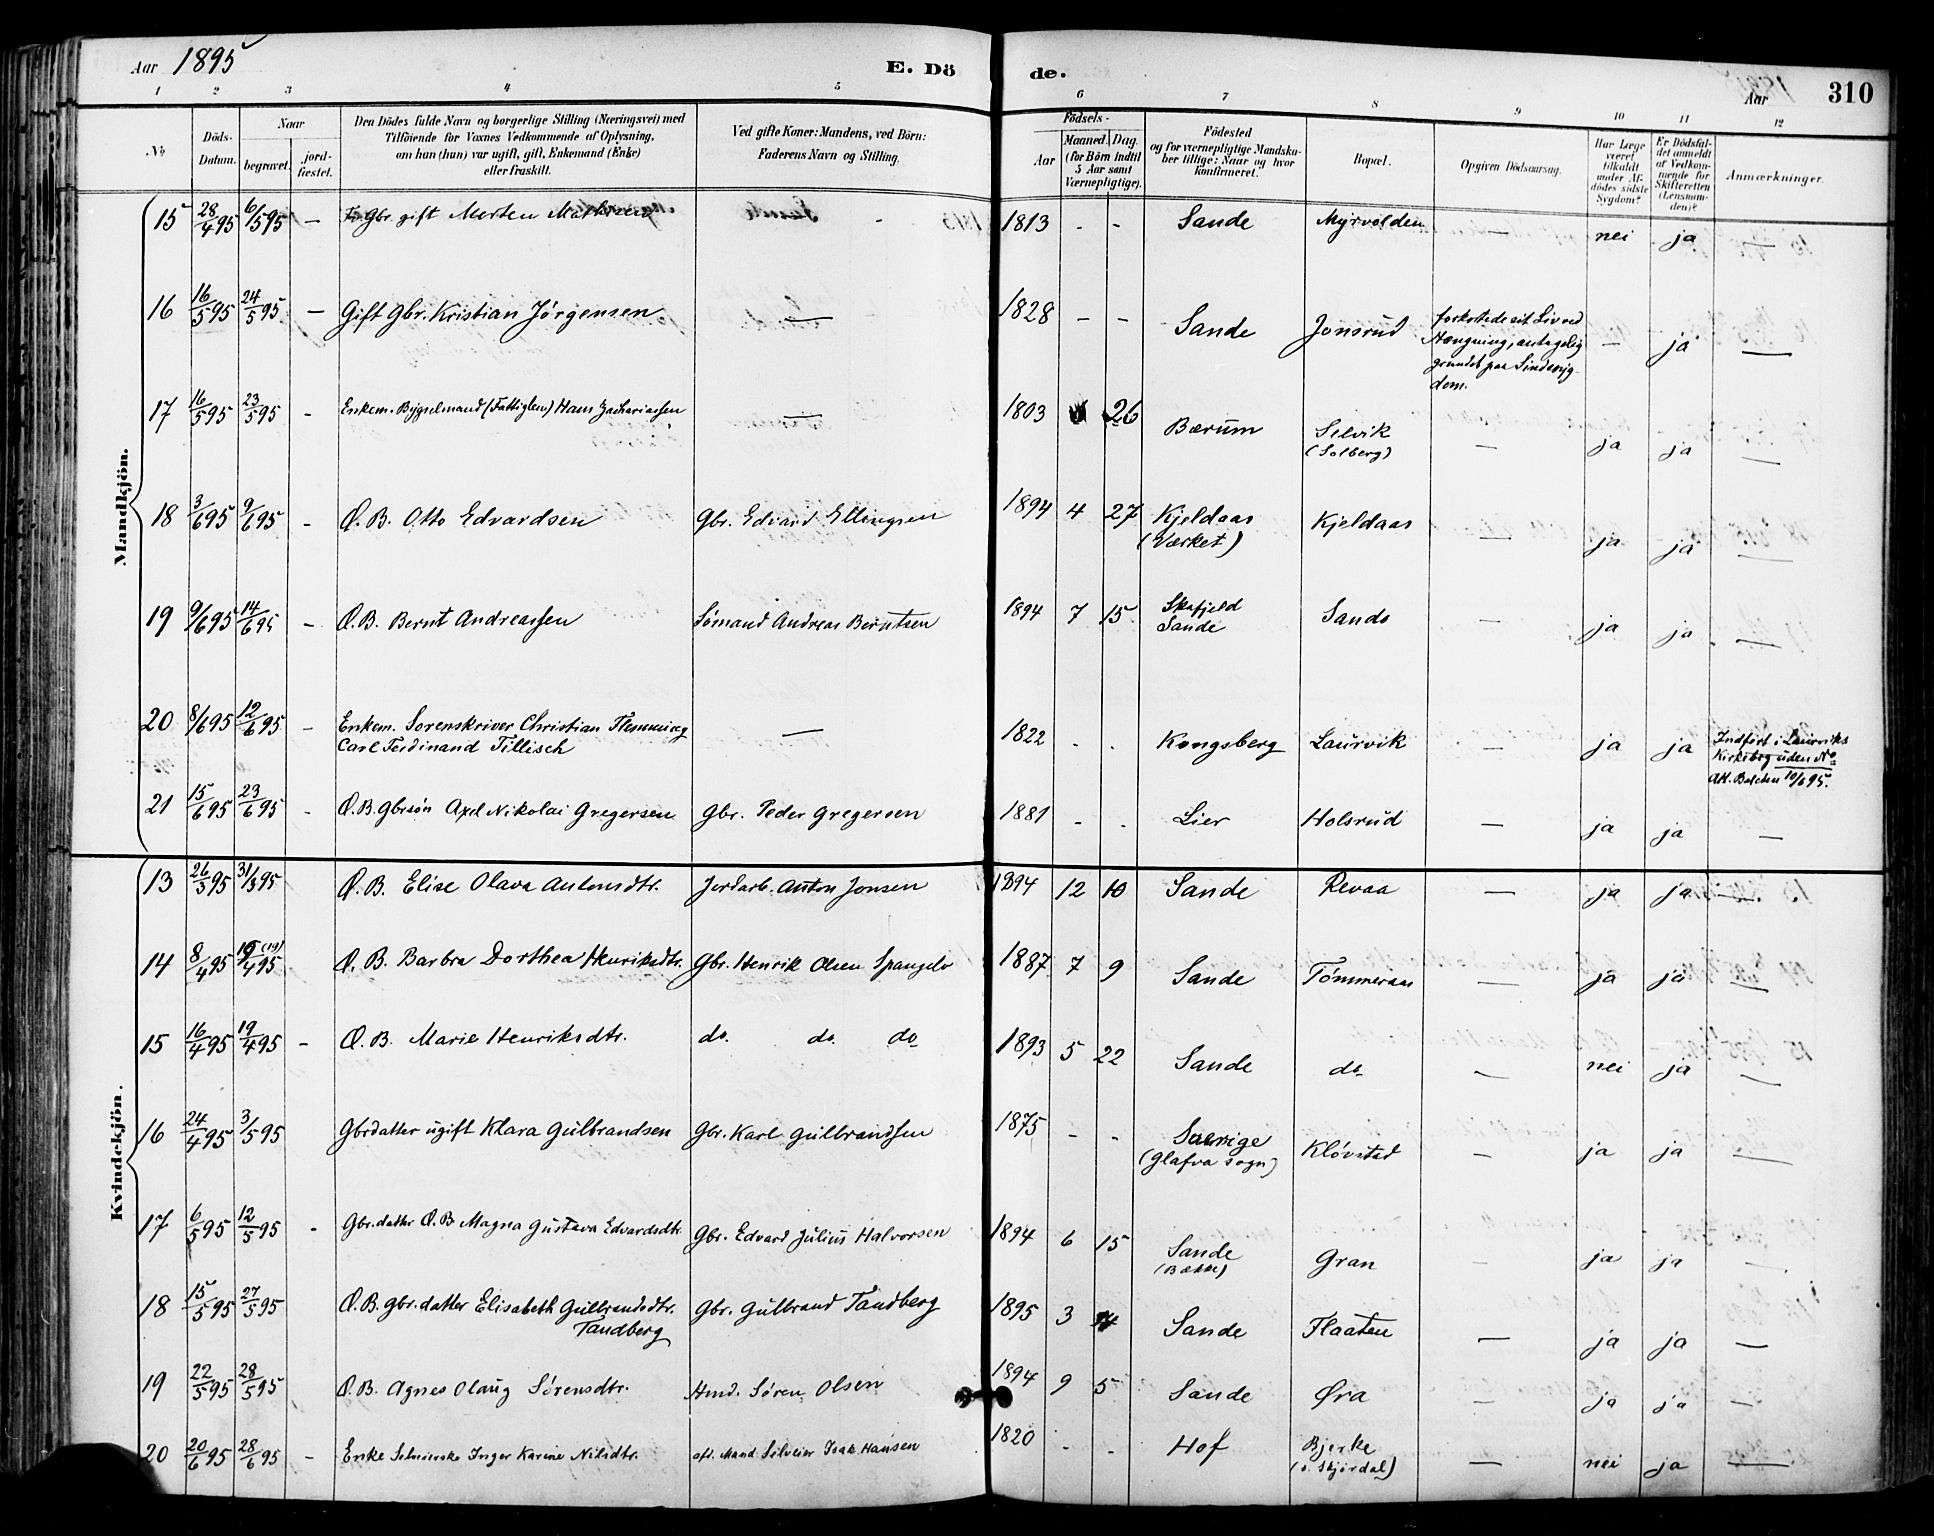 Aar 1895 E. Dö de. Aar 310
1 2 3 4 5 6 7 8 9 10 11 12
No Döds-Datum. Naar begravet. jord-fæstet. Den Dödes fulde Navn og borgerlige Stilling (Næringsvei) med Tilföiende for Voxnes Vedkommende af Oplysning, om han (hun) var ugift, gift, Enkemand (Enke) eller fraskilt. Ved gifte Koner: Mandens, ved Börn: Faderens Navn og Stilling. Födsels- Aar Maaned. Dag. (for Börn indtil 5 Aar samt Værnepligtige). Födested og for værnepligtige Mandskaber tillige: Naar og hvor konfirmeret. Bopæl. Opgiven Dödsaarsag. Har Læge været tilkaldt under Afdödes sidste Sygdom? Er Dödsfaldet anmeldt af Vedkommende for Skifteretten (Lensmanden)? Anmærkninger.
Mandkjön.
15 28/4 95 6/5 95 — Fr. Gbr. gift Morten Mathisen 1813 - - Sande Myrvolden — nei ja —
16 16/5 95 24/5 95 — Gift Gbr. Kristian Jørgensen — 1828 - - Sande Jonsrud forkortede sit Liv ved Hængning, antagelig grundet paa Sindssygdom. — ja —
17 16/5 95 23/5 95 - Enkem. Bygselmand (Fattiglem) Hans Zachariassen — 1803 26 Bærum Selvik (Solberg) — ja ja —
18 3/6 95 9/6 95 - Ø. B. Otto Edvardsen Gbr. Edvard Ellingsen 1894 4 27 Kjeldaas (Værket) Kjeldaas — ja ja —
19 9/6 95 14/6 95 - Ø. B. Bernt Andreassen Sømand Andreas Berntsen 1894 7 15 Skafjeld Sande Sande — ja ja —
20 8/6 95 12/6 95 - Enkem. Sorenskriver Christian Flemming Carl Ferdinand Tillisch — 1822 - - Kongsberg Laurvik — ja ja Indført i Laurviks Kirkebog uden No Att. Balchen 10/6 95.
21 15/6 95 23/6 95 - Ø. B. Gbrsøn Axel Nikolai Gregersen Gbr. Peder Gregersen 1881 - - Lier Holsrud — ja ja —
Kvindekjön.
13 26/3 95 31/3 95 Ø. B. Elise Olava Antonsdtr. Jordarb. Anton Jonsen 1894 12 10 Sande Revaa — ja ja —
14 8/4 95 19/4 95 (19) Ø. B. Barbra Dorthea Henriksdtr. Gbr. Henrik Olsen Spangelo 1887 7 9 Sande Tømmeraas — ja ja —
15 16/4 95 19/4 95 - Ø. B. Marie Henriksdtr. do. do. do 1893 5 22 Sande do — nei ja —
16 24/4 95 3/5 95 Gbrdatter ugift Klara Gulbrandsen Gbr. Karl Gulbrandsen 1875 - - Sverige (Glafva sogn) Kløvstad — ja ja —
17 6/5 95 12/5 95 - Gbr.datter Ø. B Magna Gustava Edvardsdtr. Gbr. Edvard Julius Halvorsen 1894 6 15 Sande (Bække) Gran - ja ja —
18 15/5 95 27/5 95 Ø. B. gbr.datter Elisabeth Gulbrandsdtr. Tandberg Gbr. Gulbrand Tandberg 1895 3 Sande Flaaten — ja ja —
19 22/5 95 28/5 95 Ø. B. Agnes Olaug Sørensdtr. Hmd. Søren Olsen 1894 9 5 Sande Øra — ja ja —
20 20/6 95 28/6 95 - Enke Inger Karine Nilsdtr. afd. Mand Selveier Isak Hansen 1820 - - Hof Bjerke (o. Skjørdal) — nei ja —